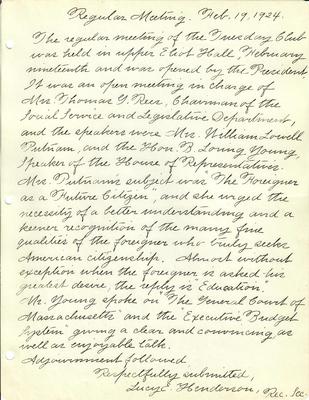 Regular Meeting. Feb. 19, 1924.
The regular meeting of the Tuesday Club
was held in upper Eliot Hall, February
nineteenth and was opened by the President.
It was an open meeting in charge of
Mrs. Thomas G. Rees, Chairman of the
Social Service and Legislative Department,
and the speakers were Mrs. William Lowell
Putnam, and the Hon. B. Loring Young,
Speaker of the House of Representatives.
Mrs. Putnam's subject was "The Foreigner
as a Future Citizen", and she urged the
necessity of a better understanding and a
keener recognition of the many fine
qualities of the foreigner who truly seeks
American citizenship. Almost without
exception when the foreigner is asked his
greatest desire, the reply is "Education."
Mr. Young spoke on "The General Court of
Massachusetts" and the "Executive Budget
System" giving a clear and convincing, as
well as enjoyable talk.
Adjournment followed.
Respectfully submitted,
Lucy E. Henderson, Rec. Sec.